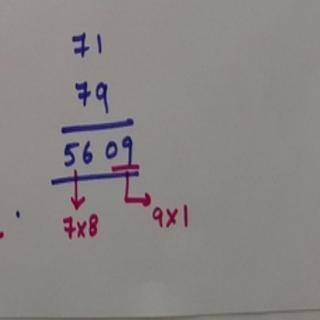 71
79
5609
7x8
9x1